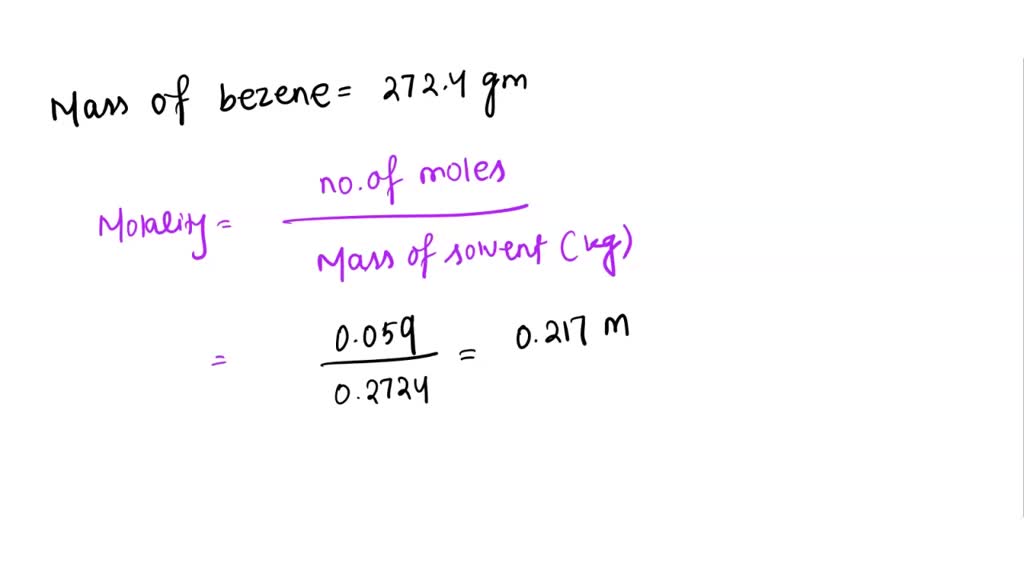 Mass of bezene = 272.4 gm
Molality = no. of moles / Mass of solvent (kg)
= 0.059 / 0.2724 = 0.217 m